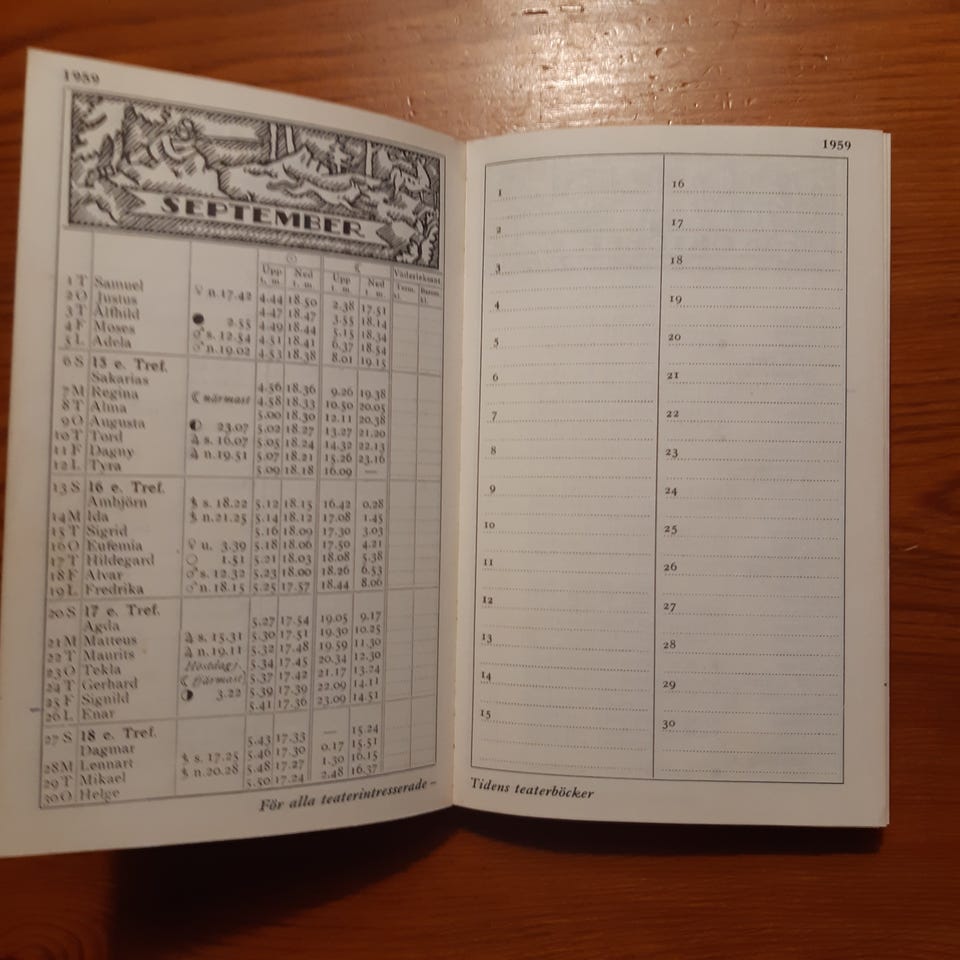 1959
SEPTEMBER
☉ ☾
Upp Ned Upp Ned Väderleksant.
t. m. t. m. t. m. t. m. Term. kl. Barom. kl.
1 T Samuel ♀ n.17.42 4.44 18.50 2.38 17.51
2 O Justus 4.47 18.47 3.55 18.14
3 T Alfhild ● 2.55 4.49 18.44 5.15 18.34
4 F Moses ♂ s. 12.54 4.51 18.41 6.37 18.54
5 L Adela ♂ n.19.02 4.53 18.38 8.01 19.15
6 S 15 e. Tref.
Sakarias 4.56 18.36 9.26 19.38
7 M Regina ☾ närmast 4.58 18.33 10.50 20.05
8 T Alma 5.00 18.30 12.11 20.38
9 O Augusta ◐ 23.07 5.02 18.27 13.27 21.20
10 T Tord ♃ s. 16.07 5.05 18.24 14.32 22.13
11 F Dagny ♃ n.19.51 5.07 18.21 15.26 23.16
12 L Tyra 5.09 18.18 16.09 —
13 S 16 e. Tref.
Ambjörn ♄ s. 18.22 5.12 18.15 16.42 0.28
14 M Ida ♄ n.21.25 5.14 18.12 17.08 1.45
15 T Sigrid 5.16 18.09 17.30 3.03
16 O Eufemia ♀ u. 3.39 5.18 18.06 17.50 4.21
17 T Hildegard ○ 1.51 5.21 18.03 18.08 5.38
18 F Alvar ♂ s. 12.32 5.23 18.00 18.26 6.53
19 L Fredrika ♂ n. 18.15 5.25 17.57 18.44 8.06
20 S 17 e. Tref.
Agda 5.27 17.54 19.05 9.17
21 M Matteus ♃ s. 15.31 5.30 17.51 19.30 10.25
22 T Maurits ♃ n.19.11 5.32 17.48 19.59 11.30
23 O Tekla Höstdagj. 5.34 17.45 20.34 12.30
24 T Gerhard ☾ fjärmast 5.37 17.42 21.17 13.24
25 F Signild ◑ 3.22 5.39 17.39 22.09 14.11
26 L Enar 5.41 17.36 23.09 14.51
27 S 18 e. Tref.
Dagmar 5.43 17.33 — 15.24
28 M Lennart ♄ s. 17.25 5.46 17.30 0.17 15.51
29 T Mikael ♄ n. 20.28 5.48 17.27 1.30 16.15
30 O Helge 5.50 17.24 2.48 16.37
För alla teaterintresserade –
1959
1
2
3
4
5
6
7
8
9
10
11
12
13
14
15
16
17
18
19
20
21
22
23
24
25
26
27
28
29
30
Tidens teaterböcker